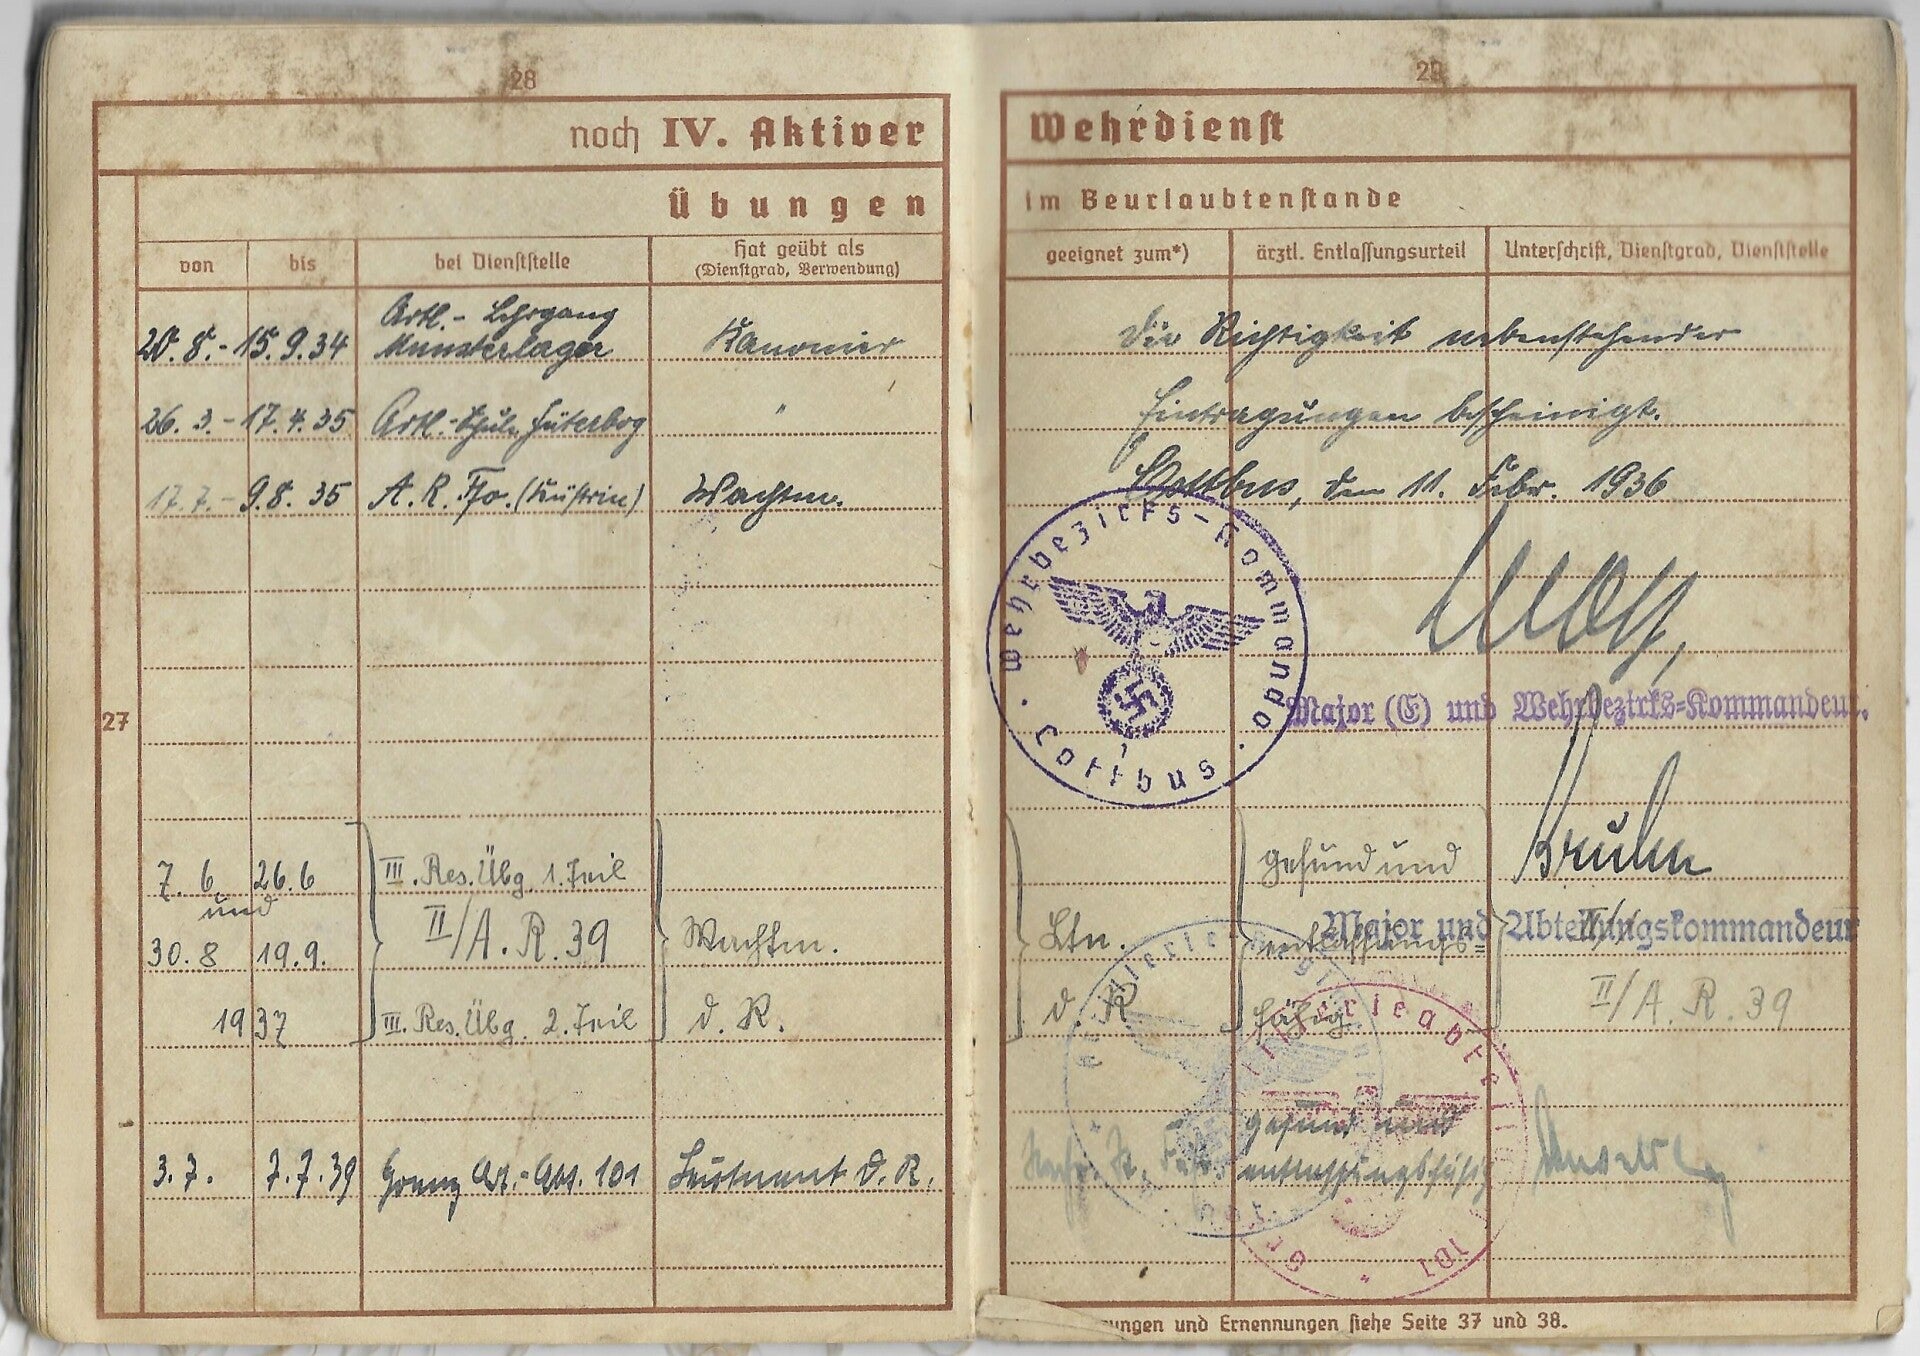 28
noch IV. Aktiver
Übungen
von bis bei Dienststelle Hat geübt als
(Dienstgrad, Verwendung)
20. 8. - 15. 9. 34 Artl.- Lehrgang
Munsterlager Kanonier
26. 3. - 17. 4. 35 Artl.-Schule Jüterbog "
17. 7. - 9. 8. 35 A. R. Ffo. (Küstrin) Wachtm.
27
7. 6. 26. 6 III. Res. Übg. 1. Teil
und
II/A. R. 39
30. 8 19. 9. Wachtm.
1937 III. Res. Übg. 2. Teil d. R.
3. 7. 7. 7. 39 Grenz Art.-Abt. 101 Leutnant d. R.
29
Wehrdienst
im Beurlaubtenstande
geeignet zum*) ärztl. Entlassungsurteil Unterschrift, Dienstgrad, Dienststelle
Die Richtigkeit nebenstehender
Eintragungen bescheinigt.
Cottbus, den 11. Febr. 1936
Wehrbezirks-Kommando
Cottbus
Major (E) und Wehrbezirks-Kommandeur.
gesund und Bruhn
Major und Abteilungskommandeur
Ltn. entlassungs=
d. R fähig II/A. R. 39
Artillerie
Artillerieabteil
101
gesund und
entlassungsfähig
ungen und Ernennungen siehe Seite 37 und 38.